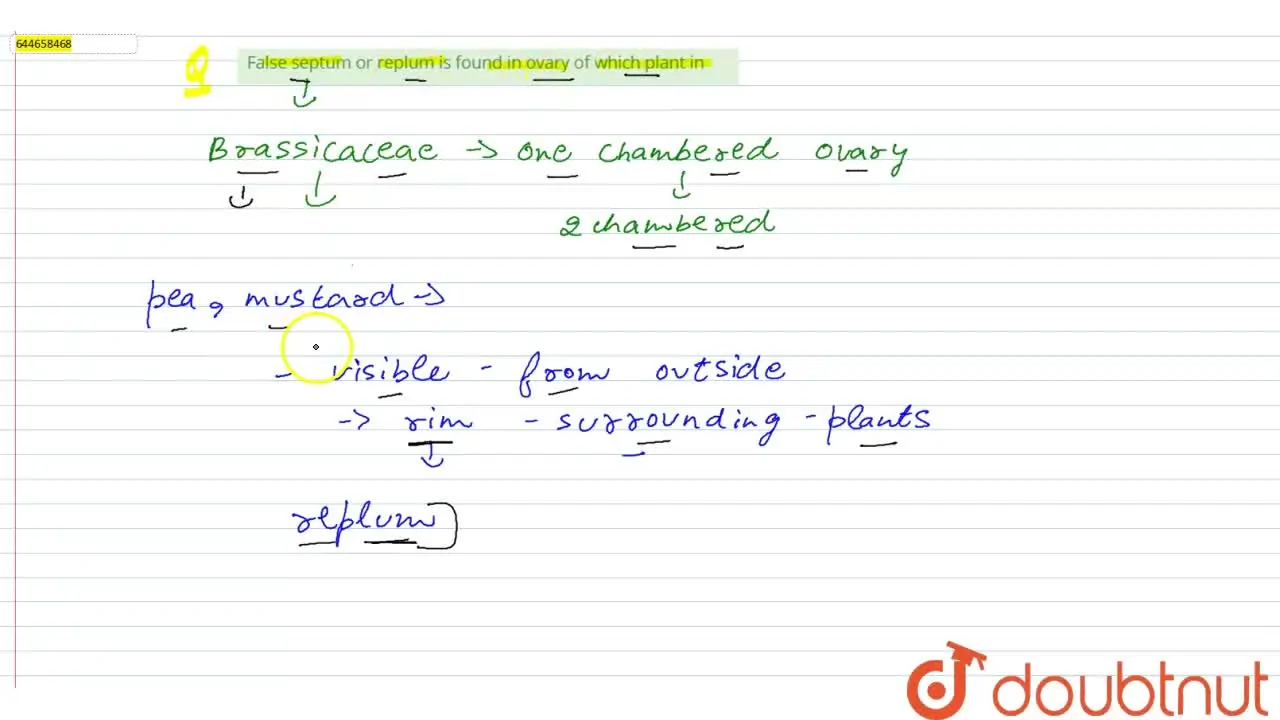 644658468
Q False septum or replum is found in ovary of which plant in
Brassicaceae → one chambered ovary
↓
2 chambered
pea, mustard →
- visible - from outside
→ rim - surrounding - plants
↓
replum
doubtnut